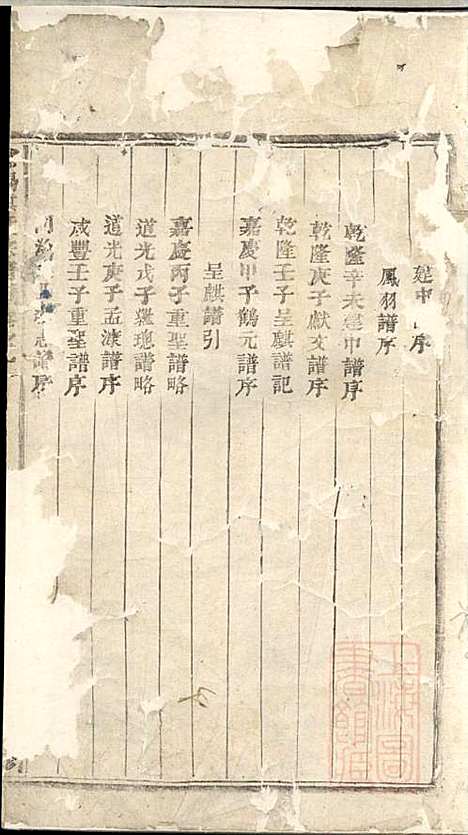 建中 序
鳳羽譜序
乾隆辛未建中譜序
乾隆庚子獻文譜序
乾隆壬子呈麒譜記
嘉慶甲子鶴元譜序
呈麒譜引
嘉慶丙子重聖譜略
道光戊子 琬譜略
道光庚子孟 譜序
咸豐壬子重聖譜序
同 譜序
上海圖書館藏